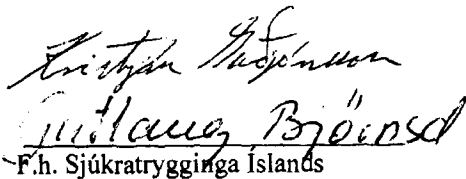 Kristján Guðjónsson
Guðlaug Björnsd
F.h. Sjúkratrygginga Íslands